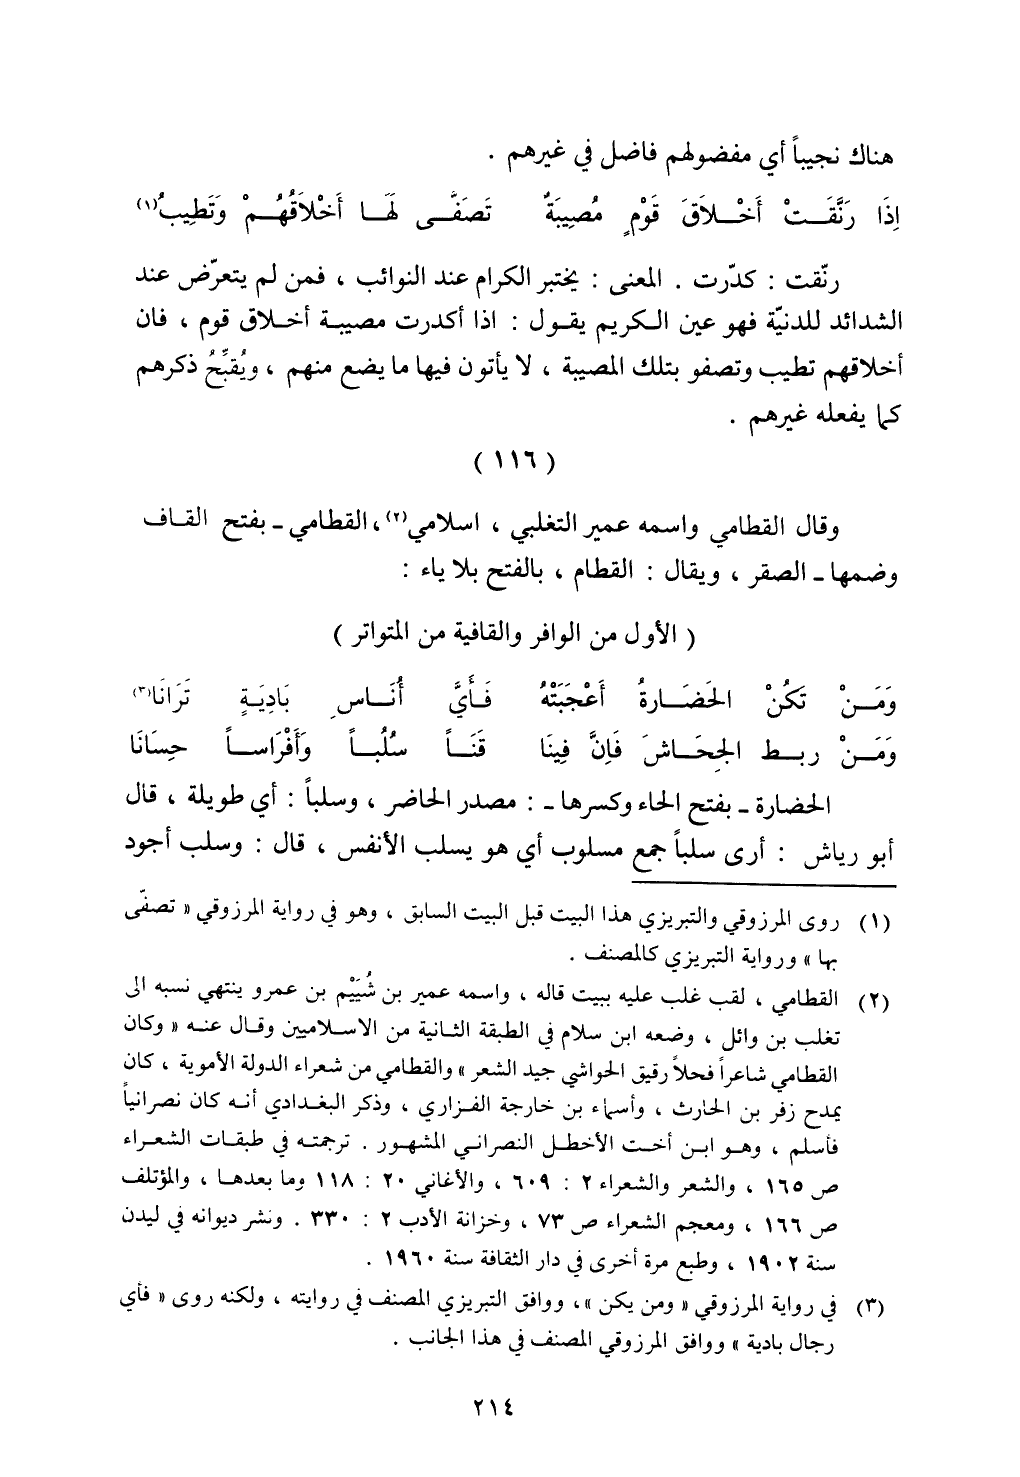 هناك نجيباً أي مفضولهم فاضل في غيرهم .
إِذَا رَنَّقَتْ أَخْلاَقَ قَوْمٍ مُصِيبَةٌ تَصَفَّى لَهَا أَخْلاَقُهُمْ وَتَطِيبُ(١)
رنّقت : كدّرت . المعنى : يختبر الكرام عند النوائب ، فمن لم يتعرّض عند
الشدائد للدنيّة فهو عين الكريم يقول : اذا أكدرت مصيبة أخلاق قوم ، فان
أخلاقهم تطيب وتصفو بتلك المصيبة ، لا يأتون فيها ما يضع منهم ، ويُقبِّحُ ذكرهم
كما يفعله غيرهم .
( ١١٦ )
وقال القطامي واسمه عمير التغلبي ، اسلامي(٢)، القطامي ـ بفتح القاف
وضمها ـ الصقر ، ويقال : القطام ، بالفتح بلا ياء :
( الأول من الوافر والقافية من المتواتر )
وَمَنْ تَكُنْ الحَضَارةُ أَعْجَبَتْهُ فَأَيَّ أُنَاسٍ بَادِيَةٍ تَرَانَا(٣)
وَمَنْ ربط الجِحَاشَ فَإِنَّ فِينَا قَنَاً سُلُباً وَأَفْرَاساً حِسَانَا
الحضارة ـ بفتح الحاء وكسرها ـ : مصدر الحاضر ، وسلباً : أي طويلة ، قال
أبو رياش : أرى سلباً جمع مسلوب أي هو يسلب الأنفس ، قال : وسلب أجود
(١) روى المرزوقي والتبريزي هذا البيت قبل البيت السابق ، وهو في رواية المرزوقي « تصفّى
بها » ورواية التبريزي كالمصنف .
(٢) القطامي ، لقب غلب عليه ببيت قاله ، واسمه عمير بن شُيَيْم بن عمرو ينتهي نسبه الى
تغلب بن وائل ، وضعه ابن سلام في الطبقة الثانية من الاسلاميين وقال عنه « وكان
القطامي شاعراً فحلاً رقيق الحواشي جيد الشعر » والقطامي من شعراء الدولة الأموية ، كان
يمدح زفر بن الحارث ، وأسماء بن خارجة الفزاري ، وذكر البغدادي أنه كان نصرانياً
فأسلم ، وهو ابن أخت الأخطل النصراني المشهور . ترجمته في طبقات الشعراء
ص ١٦٥ ، والشعر والشعراء ٢ : ٦٠٩ ، والأغاني ٢٠ : ١١٨ وما بعدها ، والمؤتلف
ص ١٦٦ ، ومعجم الشعراء ص ٧٣ ، وخزانة الأدب ٢ : ٣٣٠ . ونشر ديوانه في ليدن
سنة ١٩٠٢ ، وطبع مرة أخرى في دار الثقافة سنة ١٩٦٠ .
(٣) في رواية المرزوقي « ومن يكن »، ووافق التبريزي المصنف في روايته ، ولكنه روى « فأي
رجال بادية » ووافق المرزوقي المصنف في هذا الجانب .
٢١٤